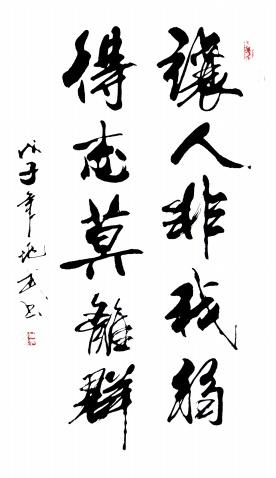 讓人非我弱
得志莫離群
戊子年